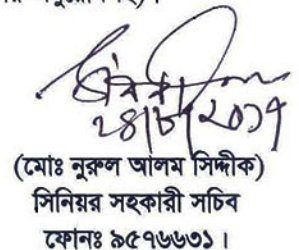 ২৪/৮/২০১৭
(মোঃ নুরুল আলম সিদ্দীক)
সিনিয়র সহকারী সচিব
ফোনঃ ৯৫৭৬৬৩১।